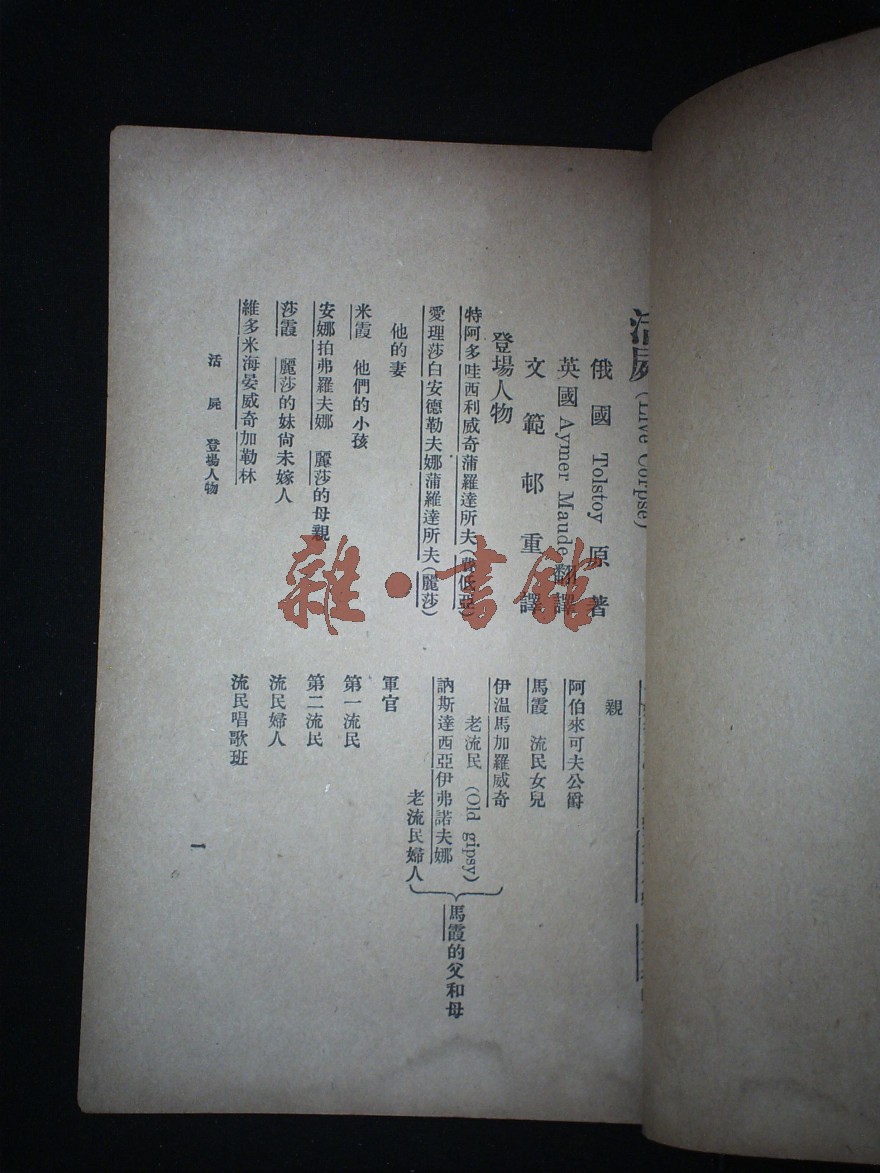 活屍 (Live Corpse)
俄國 Tolstoy 原著
英國 Aymer Maude 翻譯
文範邨重譯
登場人物
特阿多哇西利威奇蒲羅達所夫(費低亞)
愛理莎白安德勒夫娜蒲羅達所夫(麗莎)
他的妻
米霞 他們的小孩
安娜拍弗羅夫娜 麗莎的母親
莎霞 麗莎的妹尙未嫁人
維多米海晏威奇加勒林
親
阿伯來可夫公爵
馬霞 流民女兒
伊溫馬加羅威奇
老流民 (Old gipsy)
訥斯達西亞伊弗諾夫娜
老流民婦人
馬霞的父和母
軍官
第一流民
第二流民
流民婦人
流民唱歌班
活屍 登場人物
一
雜·書館